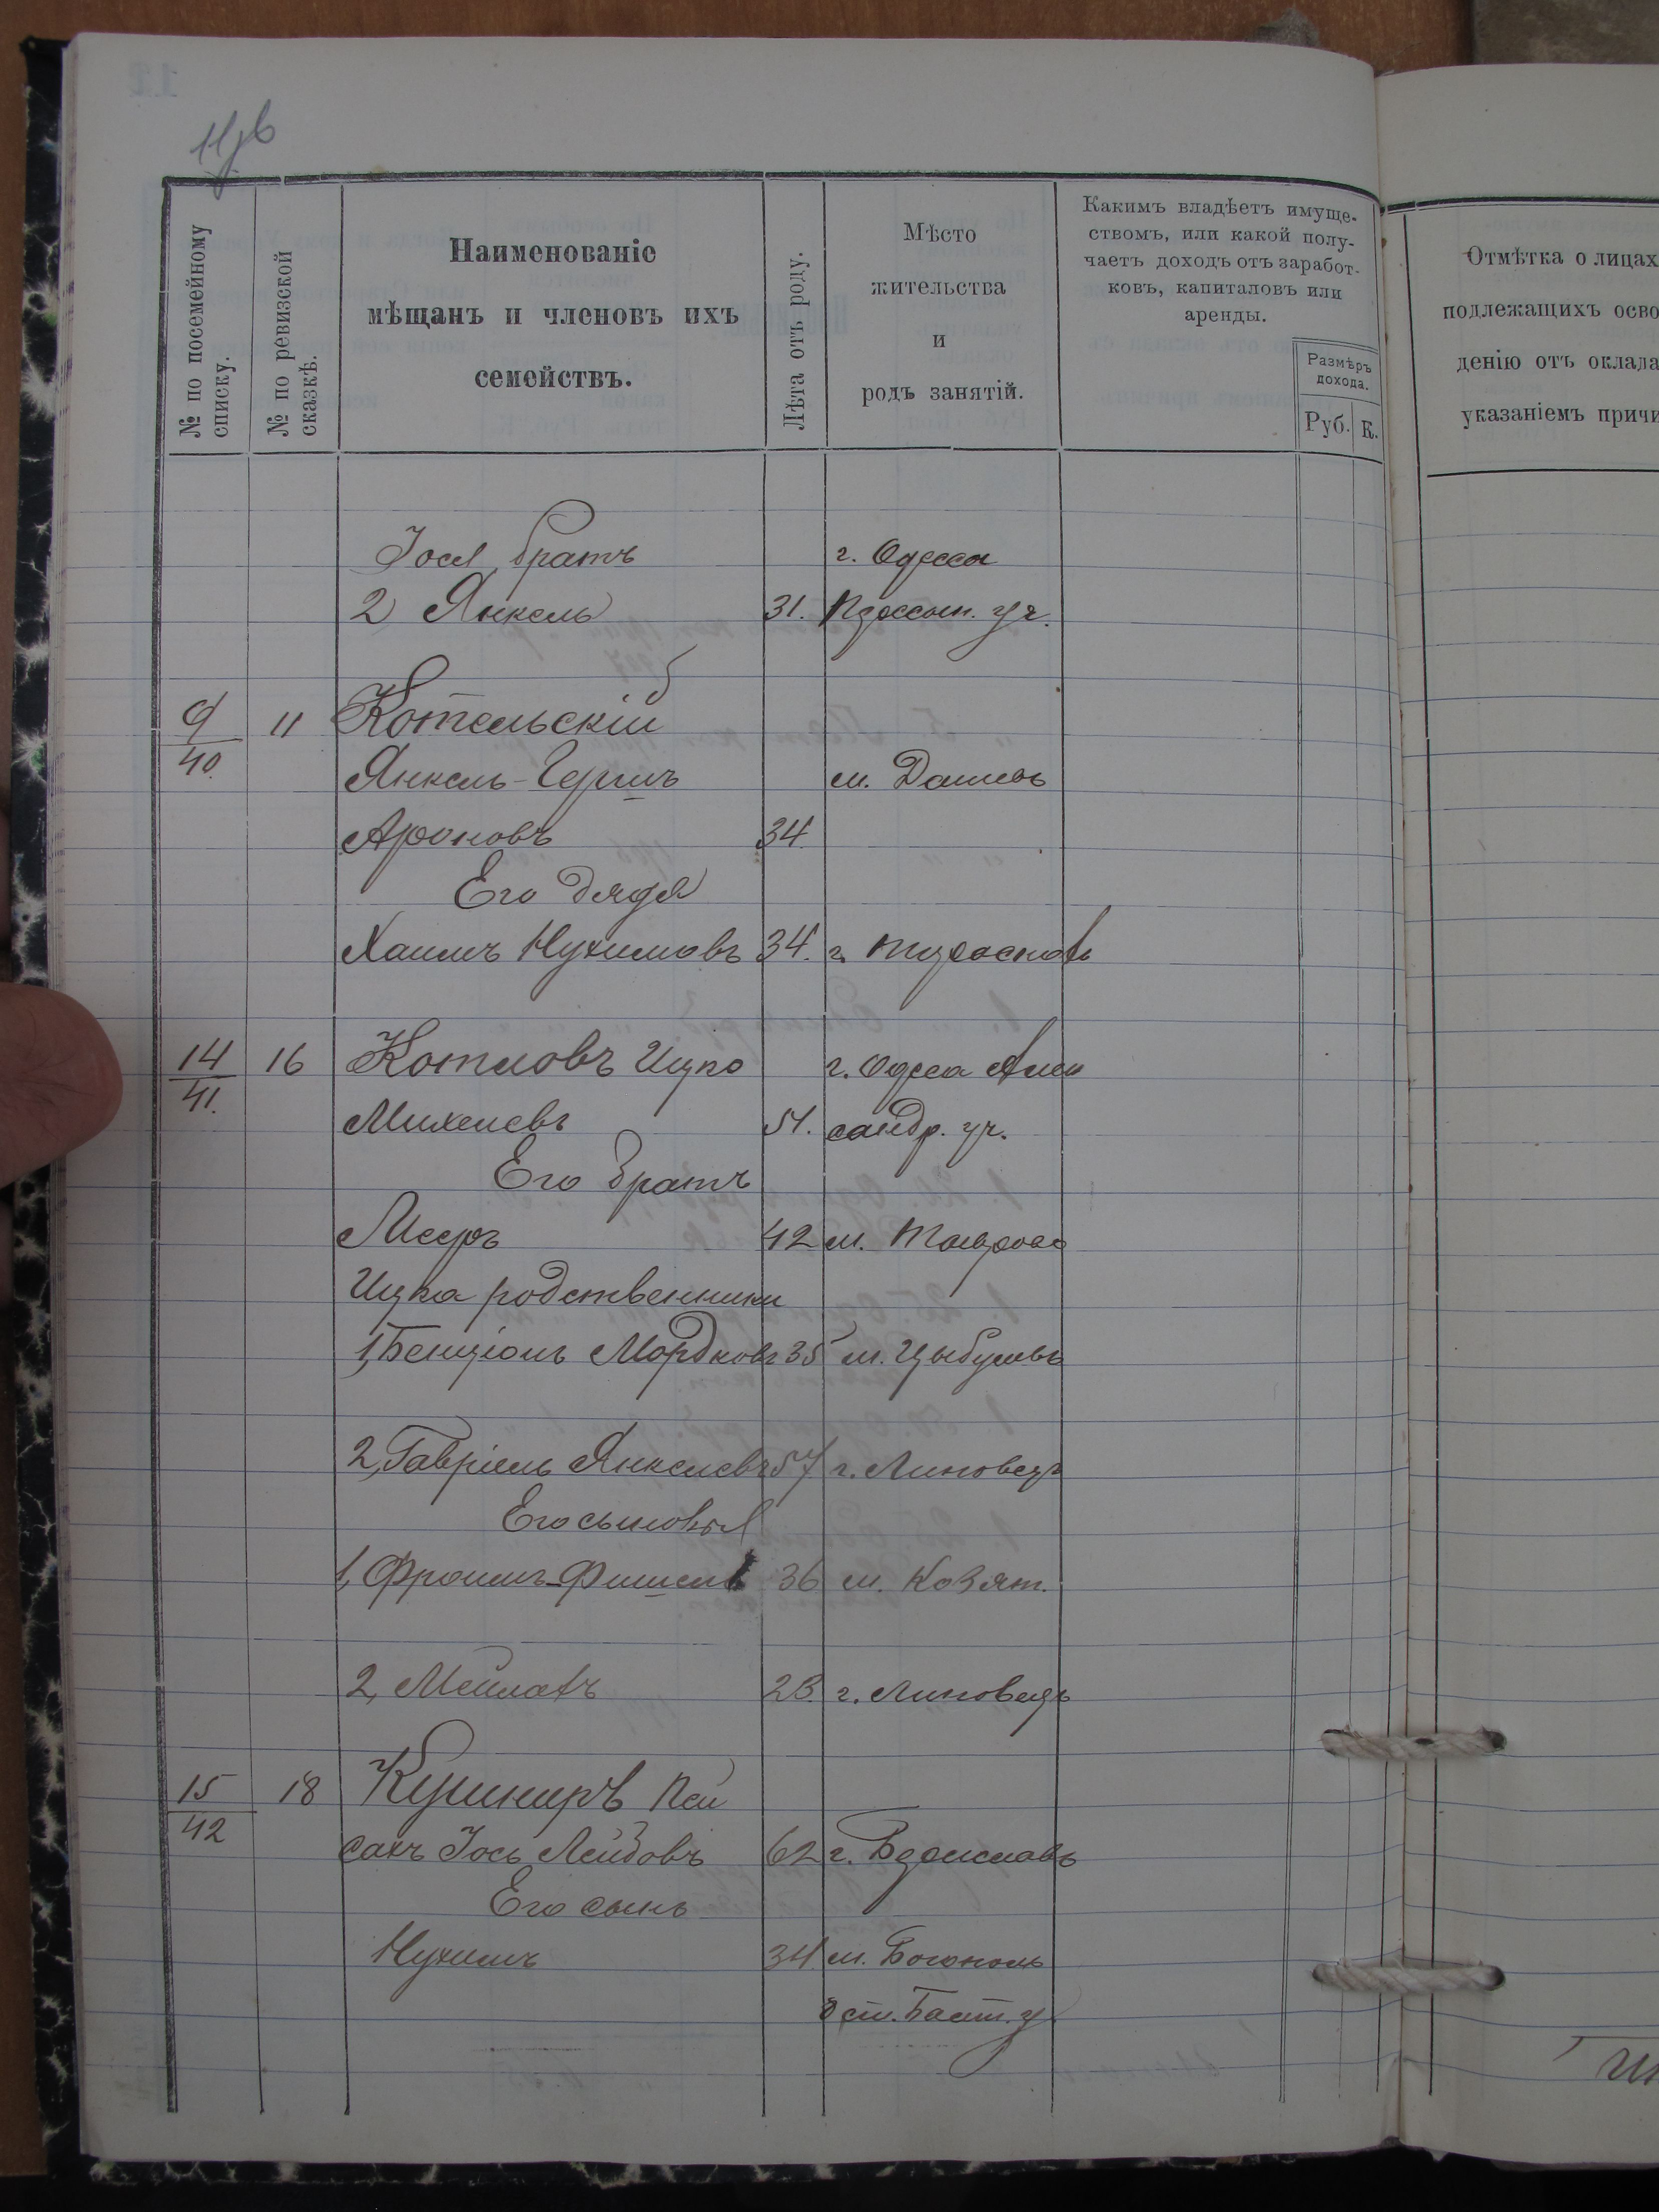 11
№ по посемейному списку.
№ по ревизской сказкѣ.
Наименованіе
мѣщанъ и членовъ ихъ
семействъ.
Лѣта отъ роду.
Мѣсто
жительства
и
родъ занятій.
Какимъ владѣетъ имуще-
ствомъ, или какой полу-
чаетъ доходъ отъ заработ-
ковъ, капиталовъ или
аренды.
Размѣръ
дохода.
Руб. К.
Отмѣтка о лицах
подлежащихъ осво
денію отъ оклада
указаніемъ причи
Іося братъ г. Одесса
2) Янкель 31. уч.
9/40 11 Котельскій
Янкель-Гершъ м. Дашевъ
Ароновъ 34
Его дядя
Хаимъ Нухимовъ 34. г.
14/41. 16 Котловъ Ицко г. Одесса Алек
Михелевъ 51. сандр. уч.
Его братъ
Мееръ 42 м.
Ицка родственники
1, Бенціонъ Мордковъ 35 м. Цыбулевъ
2, Гавріель Янкелевъ 57 г. Липовецъ
Его сыновья
1, Фроимъ-Фишель 36 м. Козят.
2, Мейлахъ 28. г. Липовецъ
15/42 18 Кушниръ Пей
сахъ Іось Лейбовъ 62 г.
Его сынъ
Нухимъ 34 м. Богополь
Балт. у.